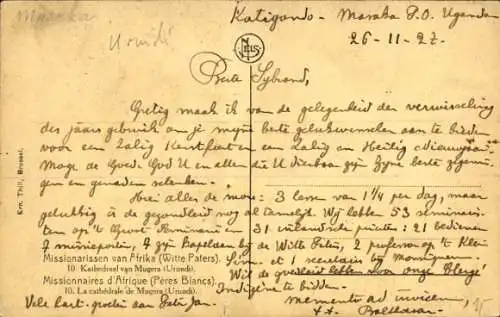 Katigondo - Masaka P.O. Uganda
26-11-27.
Urundi
NELS
Beste Sybrand,
Gretig maak ik van de gelegenheid der verwisseling
des jaars gebruik om je mijne beste gelukwenschen aan te bieden
voor een Zalig Kerstfeest en een Zalig en Heilig Nieuwjaar
Moge de Goede God U en allen die U dierbaar zijn Zijne beste zegenin-
gen en genaden schenken.
Hier alles de mou: 3 lessen van 1 1/4 per dag, maar
gelukkig is de gezondheid nog al tamelijk. Wij hebben 53 seminaris-
ten op 't Groot Seminarie en 31 inlandsche priesters: 21 bedienen
7 missieposten, 7 zijn Kapelaan bij de Witte Paters, 2 professor op 't Klein
Sem. et 1 secretaris bij Monseigneur.
Wil de overleest bidden voor onze Clergé
Indigène te bidden.
memento ad invicem,
Vele hart. groeten aan Pater Jan.
Balthasar
Missionarissen van Afrika (Witte Paters).
10. Kathedraal van Mugera (Urundi).
Missionnaires d'Afrique (Pères Blancs).
10. La cathédrale de Mugera (Urundi).
Ern. Thill, Brussel.